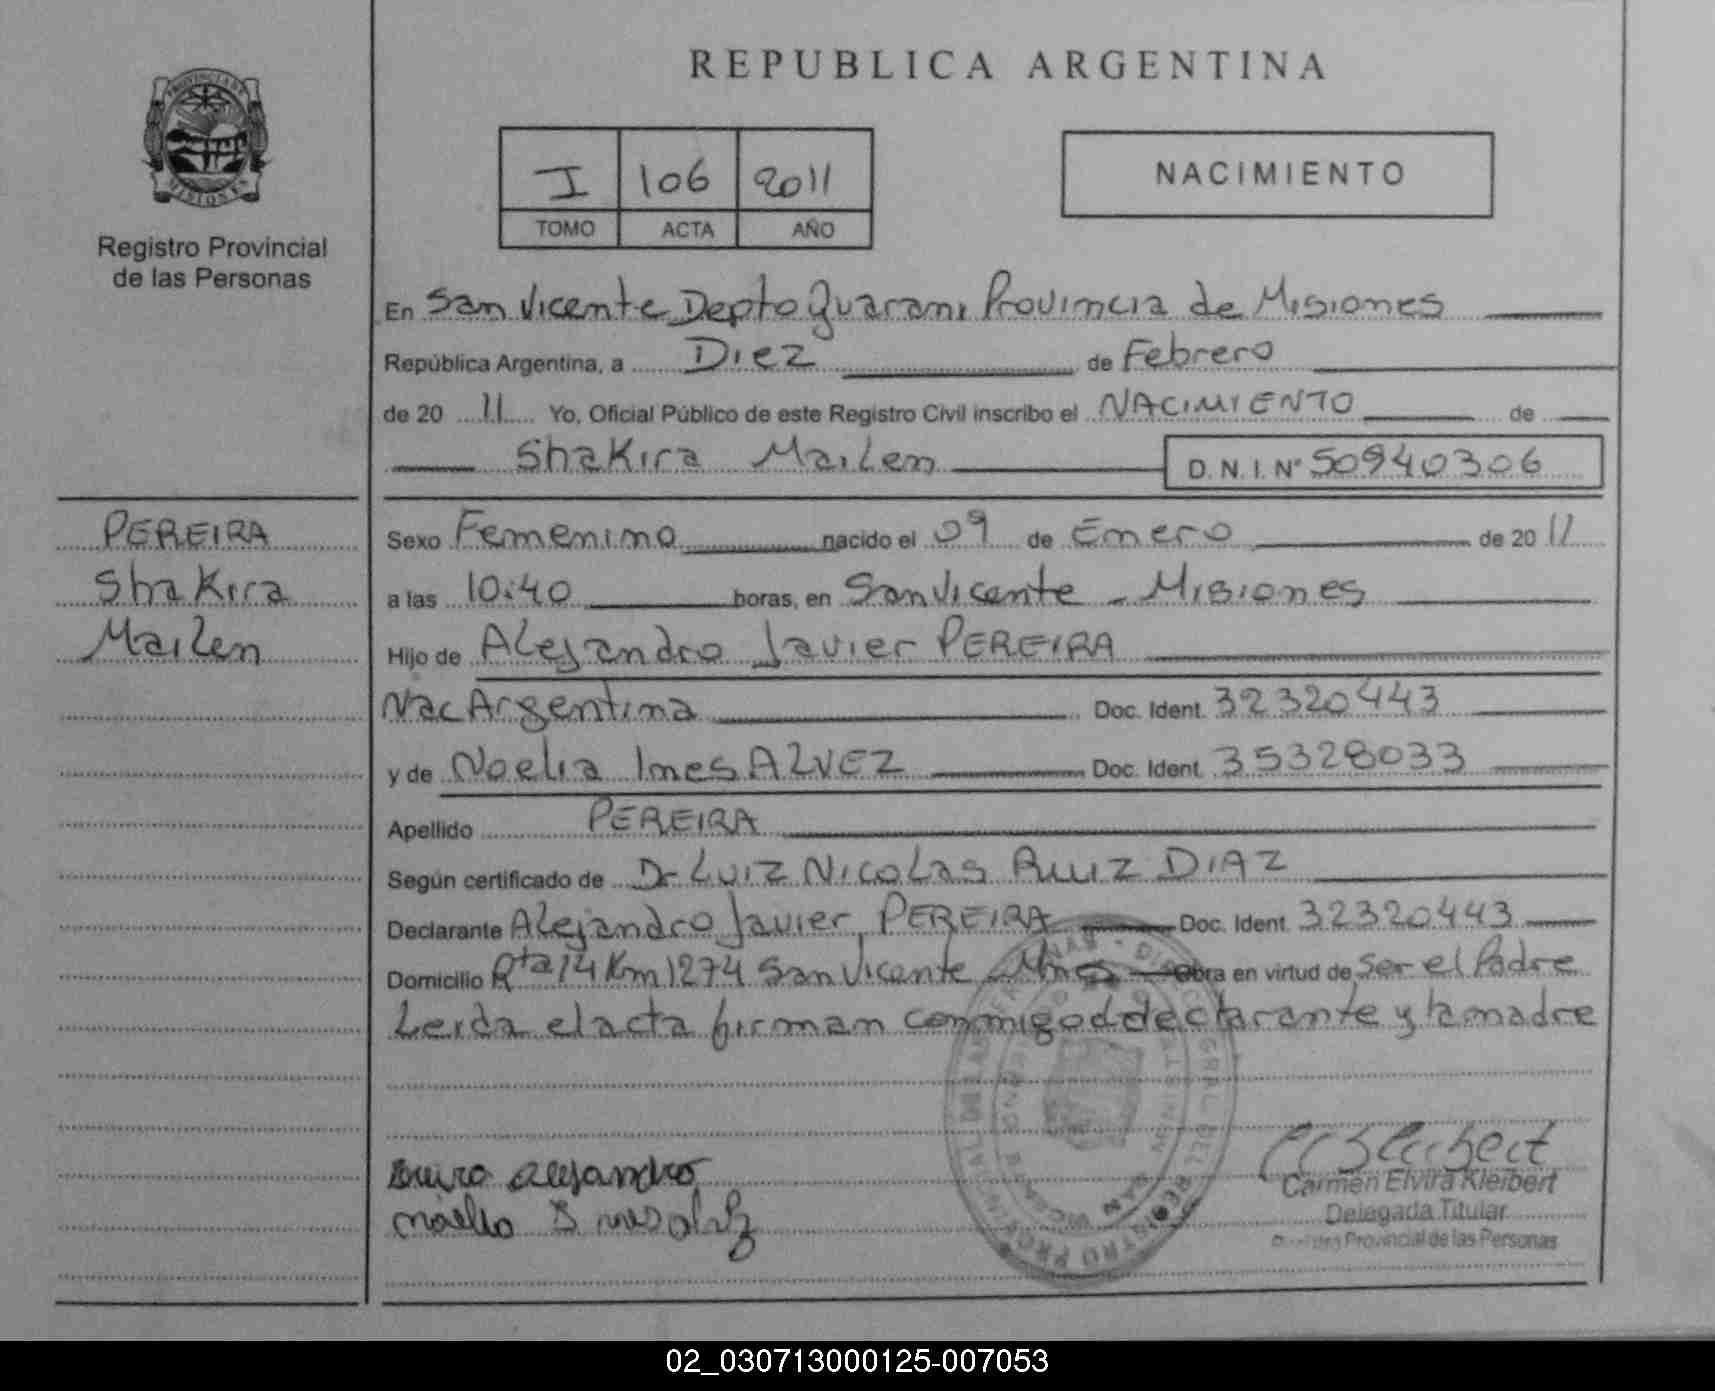 REPUBLICA ARGENTINA
PROVINCIA DE
MISIONES
Registro Provincial
de las Personas
I 106 2011
TOMO ACTA AÑO
NACIMIENTO
En San Vicente Depto Guarani Provincia de Misiones
República Argentina, a Diez de Febrero
de 20 11 Yo, Oficial Público de este Registro Civil inscribo el NACIMIENTO de
Shakira Mailen D. N. I. N° 50940306
PEREIRA
Shakira
Mailen
Sexo Femenino nacido el 09 de Enero de 20 11
a las 10:40 horas, en San Vicente - Misiones
Hijo de Alejandro Javier PEREIRA
Nac Argentina Doc. Ident. 32320443
y de Noelia Ines ALVEZ Doc. Ident. 35328033
Apellido PEREIRA
Según certificado de Dr LUIZ NICOLAS RUIZ DIAZ
Declarante Alejandro Javier PEREIRA Doc. Ident. 32320443
Domicilio Rta 14 Km 1274 San Vicente - Mnes Obra en virtud de ser el Padre
Leida el acta firman conmigo el declarante y la madre
alejandro
Carmen Elvira Kleibert
Delegada Titular
Provincial de las Personas
02_030713000125-007053